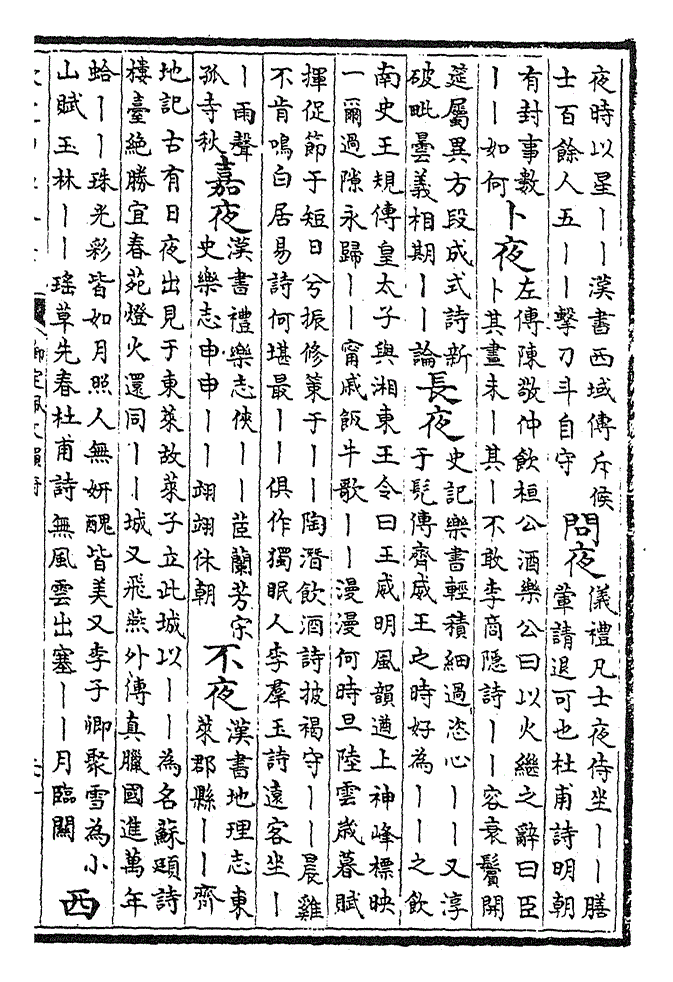 夜時以星｜｜漢書西域傳斥候
士百餘人五｜｜擊刀斗自守
問夜
儀禮凡士夜侍坐｜｜膳
葷請退可也杜甫詩明朝
有封事數
｜｜如何
卜夜
左傳陳敬仲飲桓公酒樂公曰以火繼之辭曰臣
卜其晝未｜其｜不敢李商隱詩｜｜容衰鬢開
筵屬異方段成式詩新
破毗曇義相期｜｜論
長夜
史記樂書輕積細過恣心｜｜又淳
于髡傳齊威王之時好為｜｜之飲
南史王規傳皇太子與湘東王令曰王威明風韻遒上神峰標映
一爾過隙永歸｜｜甯戚飯牛歌｜｜漫漫何時旦陸雲歲暮賦
揮促節于短日兮振修策于｜｜陶潛飲酒詩披褐守｜｜晨雞
不肯鳴白居易詩何堪最｜｜俱作獨眠人李羣玉詩遠客坐｜
｜雨聲
孤寺秋
嘉夜
漢書禮樂志俠｜｜茝蘭芳宋
史樂志申申｜｜翊翊休朝
不夜
漢書地理志東
萊郡縣｜｜齊
地記古有日夜出見于東萊故萊子立此城以｜｜為名蘇頲詩
樓臺絕勝宜春苑燈火還同｜｜城又飛燕外傳真臘國進萬年
蛤｜｜珠光彩皆如月照人無妍醜皆美又李子卿聚雪為小
山賦玉林｜｜瑤草先春杜甫詩無風雲出塞｜｜月臨關
西